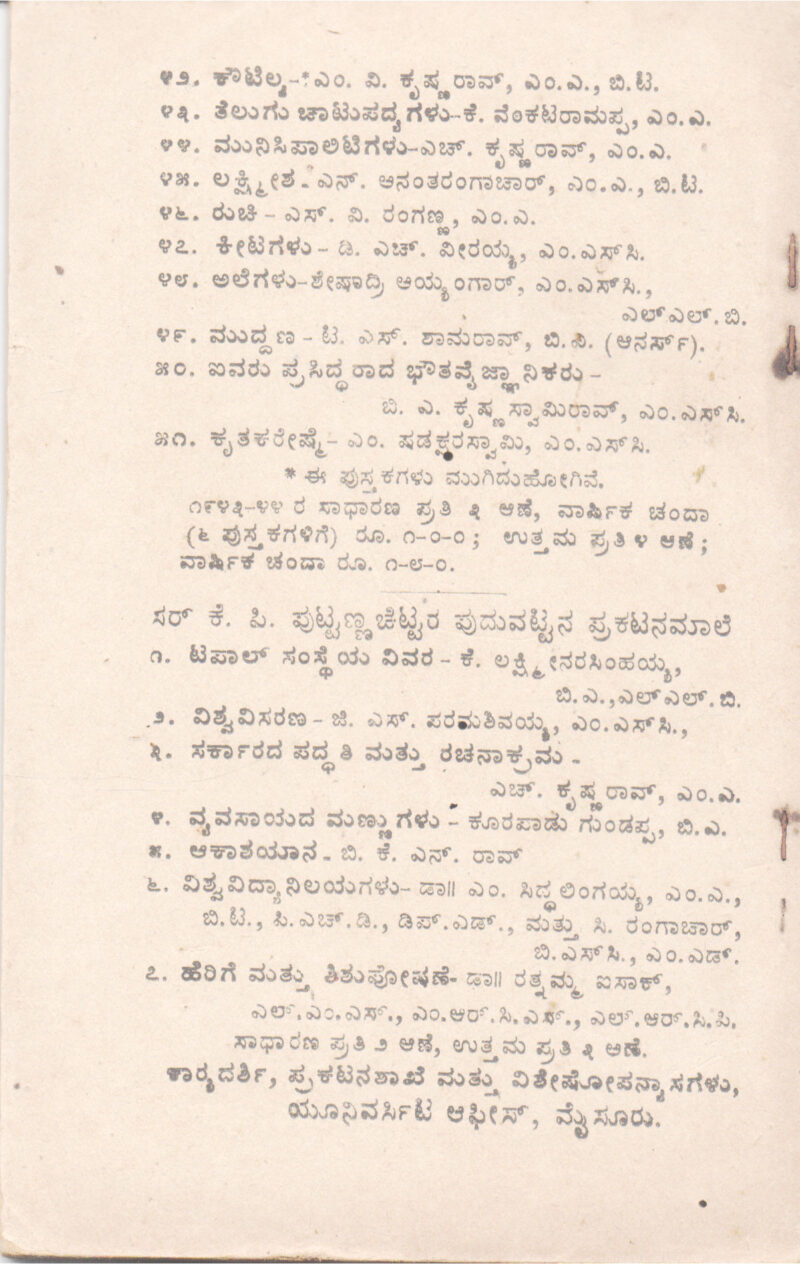 ೪೨. ಕೌಟಿಲ್ಯ-*ಎಂ. ವಿ. ಕೃಷ್ಣರಾವ್, ಎಂ.ಎ., ಬಿ.ಟಿ.
೪೩. ತೆಲುಗು ಚಾಟುಪದ್ಯಗಳು-ಕೆ. ವೆಂಕಟರಾಮಪ್ಪ, ಎಂ.ಎ.
೪೪. ಮುನಿಸಿಪಾಲಿಟಿಗಳು-ಎಚ್. ಕೃಷ್ಣರಾವ್, ಎಂ.ಎ.
೪೫. ಲಕ್ಷ್ಮೀಶ- ಎನ್. ಅನಂತರಂಗಾಚಾರ್, ಎಂ.ಎ., ಬಿ.ಟಿ.
೪೬. ರುಚಿ - ಎಸ್. ವಿ. ರಂಗಣ್ಣ, ಎಂ.ಎ.
೪೭. ಕೀಟಗಳು - ಡಿ. ಎಚ್. ವೀರಯ್ಯ, ಎಂ.ಎಸ್‌ಸಿ.
೪೮. ಅಲೆಗಳು-ಶೇಷಾದ್ರಿ ಅಯ್ಯಂಗಾರ್, ಎಂ.ಎಸ್‌ಸಿ.,
ಎಲ್‌ಎಲ್.ಬಿ.
೪೯. ಮುದ್ದಣ - ಟಿ. ಎಸ್. ಶಾಮರಾವ್, ಬಿ.ಎ. (ಆನರ್ಸ್).
೫೦. ಐವರು ಪ್ರಸಿದ್ಧರಾದ ಭೌತವೈಜ್ಞಾನಿಕರು -
ಬಿ. ಎ. ಕೃಷ್ಣಸ್ವಾಮಿರಾವ್, ಎಂ.ಎಸ್‌ಸಿ.
೫೧. ಕೃತಕರೇಷ್ಮೆ - ಎಂ. ಷಡಕ್ಷರಸ್ವಾಮಿ, ಎಂ.ಎಸ್‌ಸಿ.
* ಈ ಪುಸ್ತಕಗಳು ಮುಗಿದುಹೋಗಿವೆ.
೧೯೪೩-೪೪ ರ ಸಾಧಾರಣ ಪ್ರತಿ ೩ ಆಣೆ, ವಾರ್ಷಿಕ ಚಂದಾ
(೬ ಪುಸ್ತಕಗಳಿಗೆ) ರೂ. ೧-೦-೦ ; ಉತ್ತಮ ಪ್ರತಿ ೪ ಆಣೆ ;
ವಾರ್ಷಿಕ ಚಂದಾ ರೂ. ೧-೮-೦.
ಸರ್ ಕೆ. ಪಿ. ಪುಟ್ಟಣ್ಣಚೆಟ್ಟರ ಪುದುವಟ್ಟಿನ ಪ್ರಕಟನಮಾಲೆ
೧. ಟಪಾಲ್ ಸಂಸ್ಥೆಯ ವಿವರ - ಕೆ. ಲಕ್ಷ್ಮೀನರಸಿಂಹಯ್ಯ,
ಬಿ.ಎ.,ಎಲ್‌ಎಲ್.ಬಿ.
೨. ವಿಶ್ವವಿಸರಣ - ಜಿ. ಎಸ್. ಪರಮಶಿವಯ್ಯ, ಎಂ.ಎಸ್‌ಸಿ.,
೩. ಸರ್ಕಾರದ ಪದ್ಧತಿ ಮತ್ತು ರಚನಾಕ್ರಮ -
ಎಚ್. ಕೃಷ್ಣರಾವ್, ಎಂ.ಎ.
೪. ವ್ಯವಸಾಯದ ಮಣ್ಣುಗಳು - ಕೂರಪಾಡು ಗುಂಡಪ್ಪ, ಬಿ.ಎ.
೫. ಆಕಾಶಯಾನ - ಬಿ. ಕೆ. ಎನ್. ರಾವ್
೬. ವಿಶ್ವವಿದ್ಯಾನಿಲಯಗಳು- ಡಾ|| ಎಂ. ಸಿದ್ಧಲಿಂಗಯ್ಯ, ಎಂ.ಎ.,
ಬಿ.ಟಿ., ಪಿ.ಎಚ್.ಡಿ., ಡಿಪ್.ಎಡ್., ಮತ್ತು ಸಿ. ರಂಗಾಚಾರ್,
ಬಿ.ಎಸ್‌ಸಿ., ಎಂ.ಎಡ್.
೭. ಹೆರಿಗೆ ಮತ್ತು ಶಿಶುಪೋಷಣೆ- ಡಾ|| ರತ್ನಮ್ಮ ಐಸಾಕ್,
ಎಲ್.ಎಂ.ಎಸ್., ಎಂ.ಆರ್.ಸಿ.ಎಸ್., ಎಲ್.ಆರ್.ಸಿ.ಪಿ.
ಸಾಧಾರಣ ಪ್ರತಿ ೨ ಆಣೆ, ಉತ್ತಮ ಪ್ರತಿ ೩ ಆಣೆ.
ಕಾರ್ಯದರ್ಶಿ, ಪ್ರಕಟನಶಾಖೆ ಮತ್ತು ವಿಶೇಷೋಪನ್ಯಾಸಗಳು,
ಯೂನಿವರ್ಸಿಟಿ ಆಫೀಸ್, ಮೈಸೂರು.